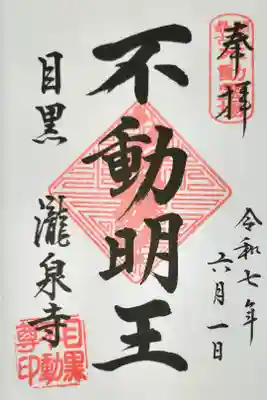 奉拝
令和七年
六月一日
不動明王
目黒 瀧泉寺
目黒
不動
尊印